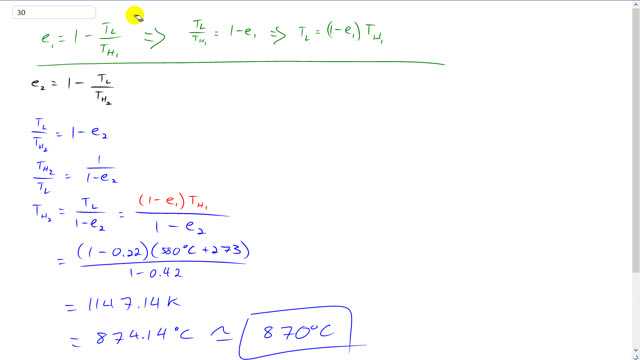 30
e₁ = 1 − T_L/T_H₁ => T_L/T_H₁ = 1 − e₁ => T_L = (1 − e₁) T_H₁
e₂ = 1 − T_L/T_H₂
T_L/T_H₂ = 1 − e₂
T_H₂/T_L = 1/(1 − e₂)
T_H₂ = T_L/(1 − e₂) = (1 − e₁) T_H₁/(1 − e₂)
= (1 − 0.22)(580°C + 273)/(1 − 0.42)
= 1147.14 K
= 874.14 °C ≃ 870°C